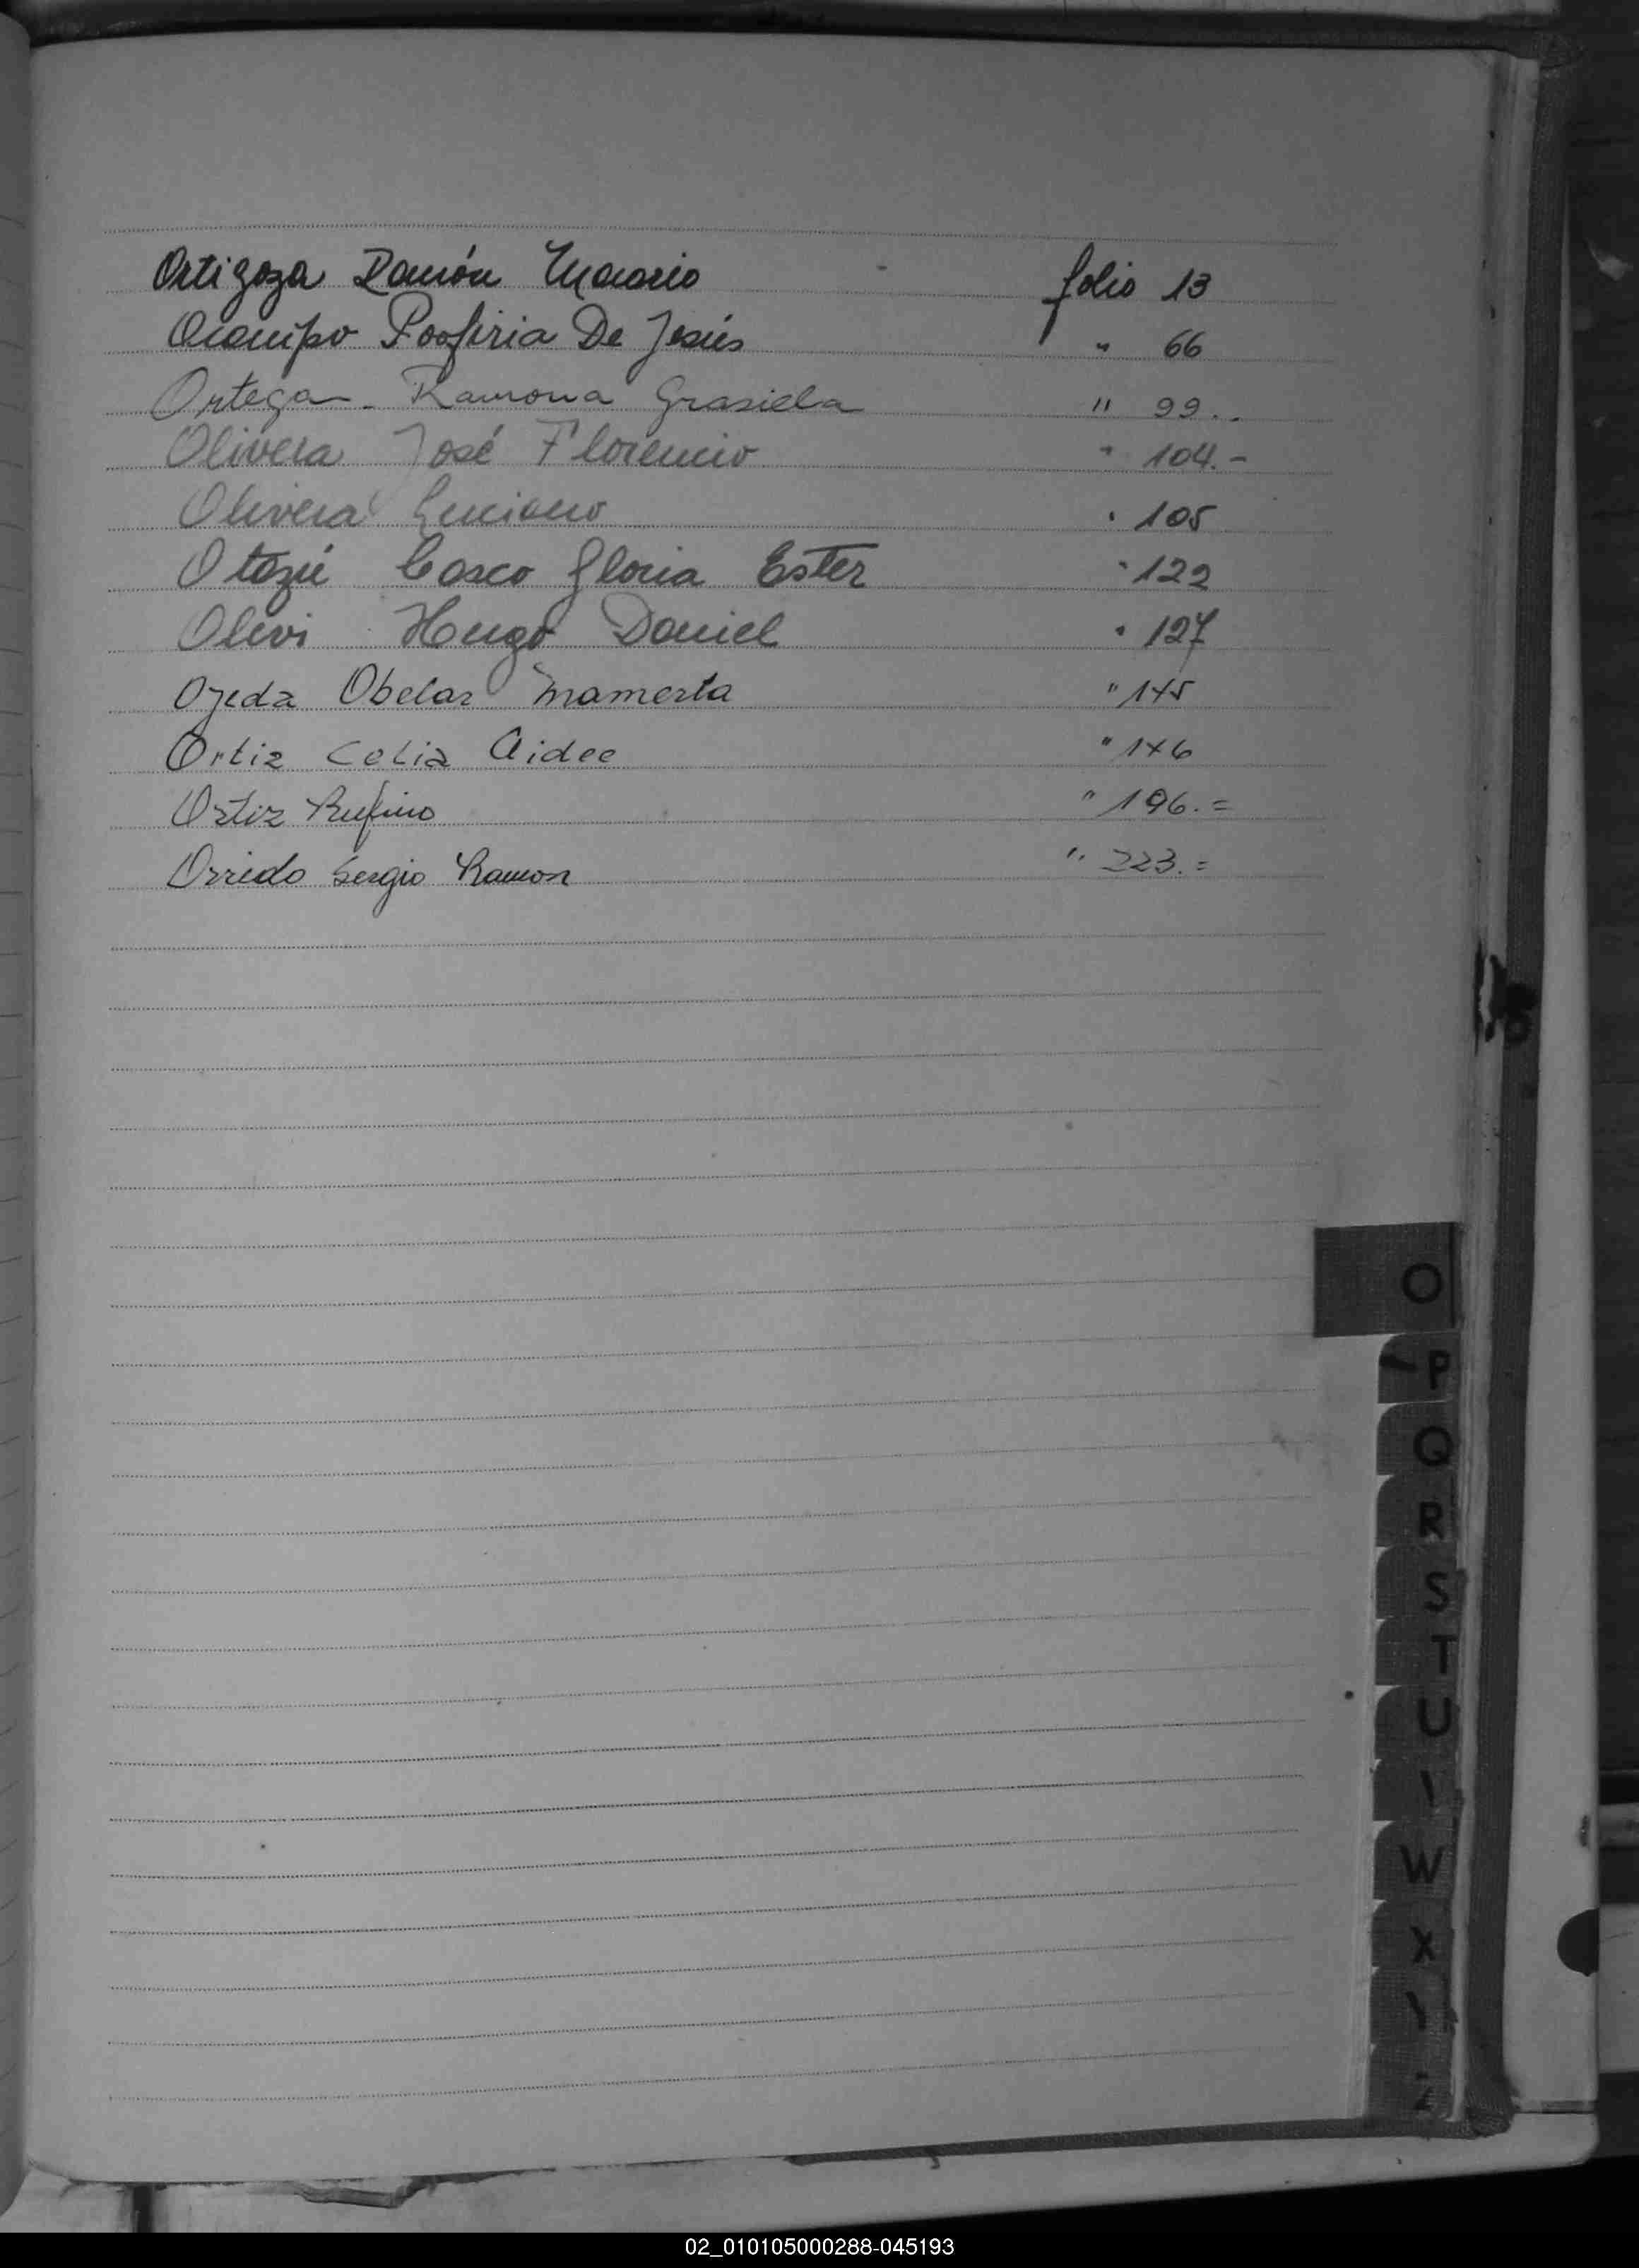 Ortigoza Ramón Macario folio 13
Ocampo Porfiria De Jesús " 66
Ortega Ramona Grasiela " 99..
Olivera José Florencio " 104.-
Olivera Luciano " 105
Otazú Casco Gloria Ester " 122
Olivi Hugo Daniel " 127
Ojeda Obelar Mamerta " 145
Ortiz Celia Aidee " 146
Ortiz Rufino " 196.=
Orredo Sergio Ramon " 223.=
O
P
Q
R
S
T
U
W
X
Z
02_010105000288-045193